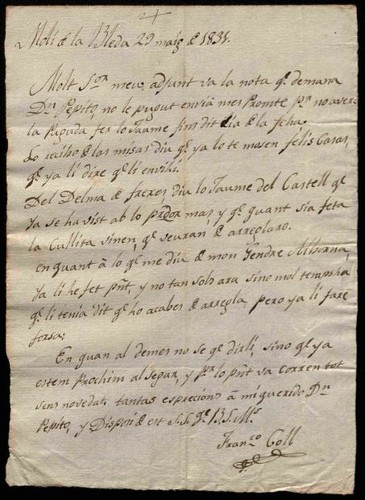 Molí de la Bleda 29 maig de 1831.
Molt Sor meu, adjunt va la nota qe demana
Dn Pepito, no le pugut enviá mes promte pr no aver
la pogada fer lo Jaume fins dit dia de la fcha.
Lo recibo de las misas diu qe ya lo te mosen felis Casas,
qe ya li dire qe li envihi.
Del Delma de frexes diu lo Jaume del Castell qe
ya se ha vist ab lo mas y qe quant sia feta
la Cullita sinen, qe seuran de arreglaro.
en quant à lo qe me diu de mon Gendre Miborna,
ya li he fet pnt, y no tan sols ara sino mol temps ha
qe li tenia dit qe ho acabes de arreglá, pero ya li fare
forsa.
En quan al demes no se qe dirli, sino qe ya
estem prochim al segar, y pr lo pnt va corren tot
sens novedat, tantas espricions à mi querido Dn
Pepito, y Dispose de est s.s. qe B.S.M.
Franco Coll